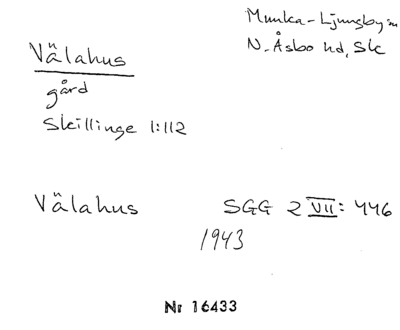 Munka-Ljungby sn
N. Åsbo hd, Sk
Välahus
gård
Skillinge 1:112
Välahus SGG 2 VII: 446
1943
Nr 16433